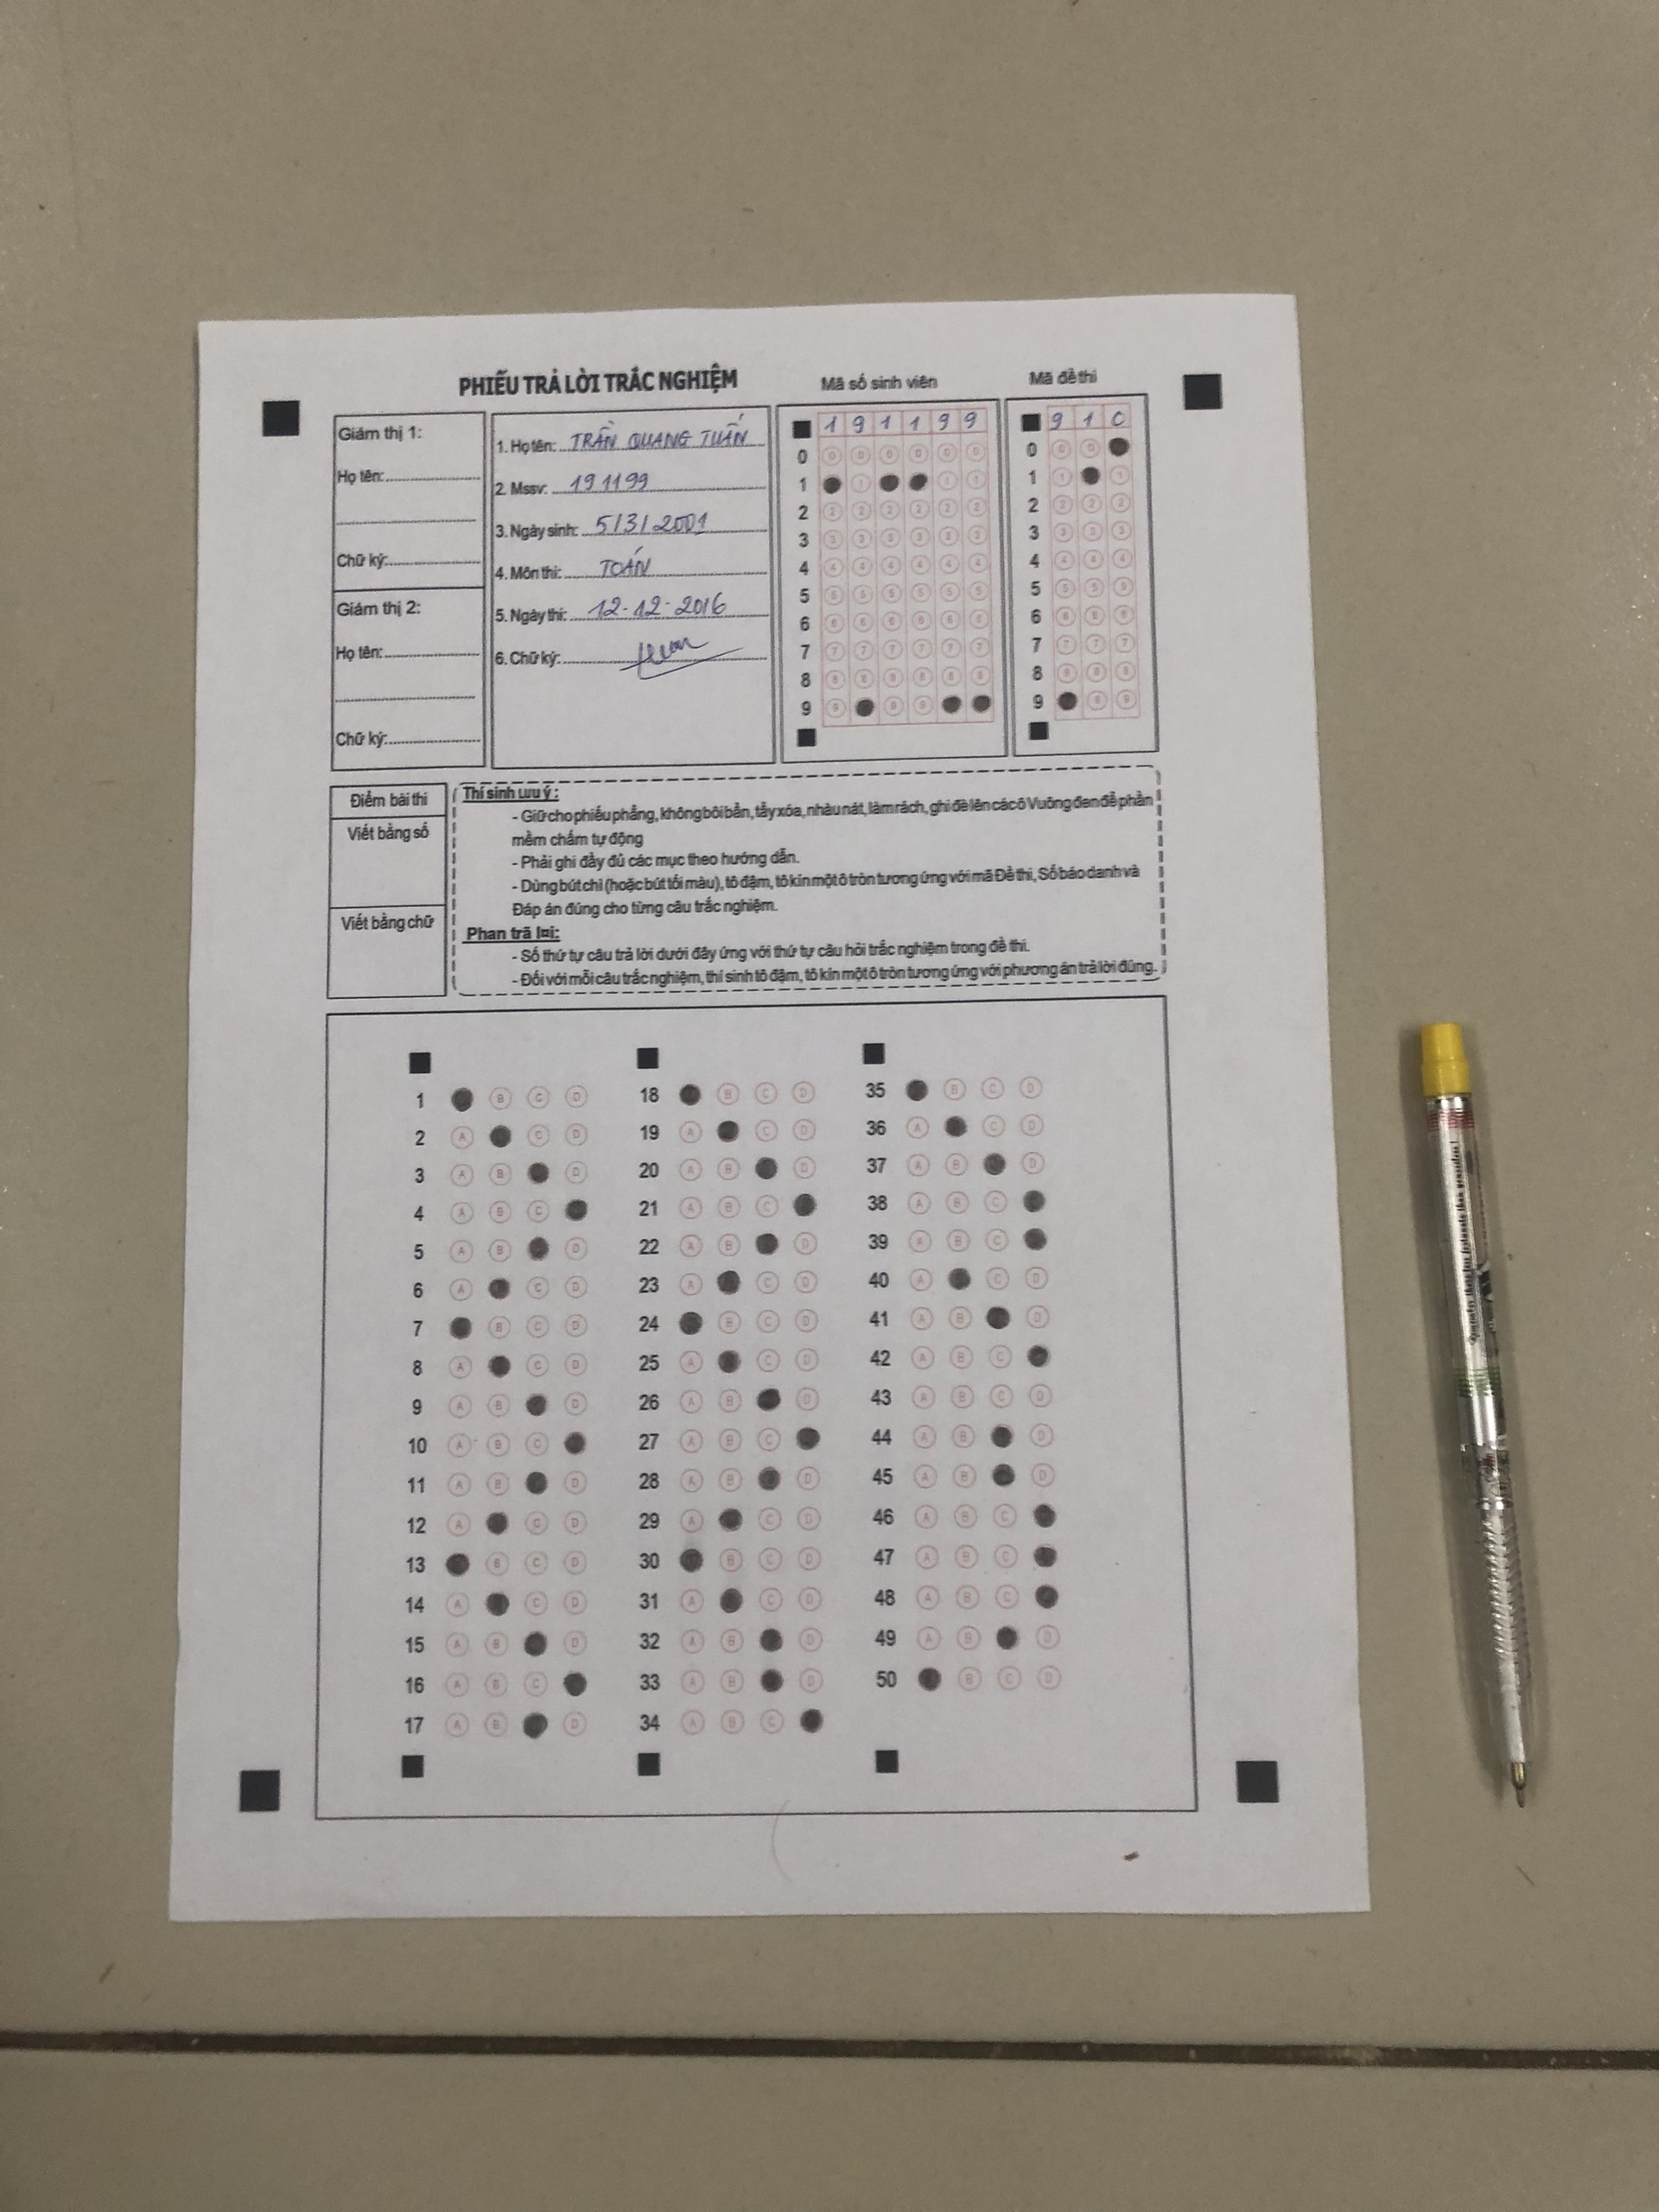 PHIẾU TRẢ LỜI TRẮC NGHIỆM
Mã số sinh viên
Mã đề thi
Giám thị 1:
Họ tên:
Chữ ký:
Giám thị 2:
Họ tên:
Chữ ký:
1. Họ tên: TRẦN QUANG TUẤN
2. Mssv: 191199
3. Ngày sinh: 5/3/2001
4. Môn thi: TOÁN
5. Ngày thi: 12-12-2016
6. Chữ ký:
1 9 1 1 9 9
0 0 0 0 0 0 0
1 1 1 1
2 2 2 2 2 2 2
3 3 3 3 3 3 3
4 4 4 4 4 4 4
5 5 5 5 5 5 5
6 6 6 6 6 6 6
7 7 7 7 7 7 7
8 8 8 8 8 8 8
9 9 9 9
9 1 0
0 0 0
1 1 1
2 2 2 2
3 3 3 3
4 4 4 4
5 5 5 5
6 6 6 6
7 7 7 7
8 8 8 8
9 9 9
Điểm bài thi
Viết bằng số
Viết bằng chữ
Thí sinh lưu ý :
- Giữ cho phiếu phẳng, không bôi bẩn, tẩy xóa, nhàu nát, làm rách, ghi đè lên các ô Vuông đen để phần
mềm chấm tự động
- Phải ghi đầy đủ các mục theo hướng dẫn.
- Dùng bút chì (hoặc bút tối màu), tô đậm, tô kín một ô tròn tương ứng với mã Đề thi, Số báo danh và
Đáp án đúng cho từng câu trắc nghiệm.
Phan trã l¤i:
- Số thứ tự câu trả lời dưới đây ứng với thứ tự câu hỏi trắc nghiệm trong đề thi.
- Đối với mỗi câu trắc nghiệm, thí sinh tô đậm, tô kín một ô tròn tương ứng với phương án trả lời đúng.
1 B C D
2 A C D
3 A B D
4 A B C
5 A B D
6 A C D
7 B C D
8 A C D
9 A B D
10 A B C
11 A B D
12 A C D
13 B C D
14 A C D
15 A B D
16 A B C
17 A B D
18 B C D
19 A C D
20 A B D
21 A B C
22 A B D
23 A C D
24 B C D
25 A C D
26 A B D
27 A B C
28 A B D
29 A C D
30 B C D
31 A C D
32 A B D
33 A B D
34 A B C
35 B C D
36 A C D
37 A B D
38 A B C
39 A B C
40 A C D
41 A B D
42 A B C
43 A B C D
44 A B D
45 A B D
46 A B C
47 A B C
48 A B C
49 A B D
50 B C D